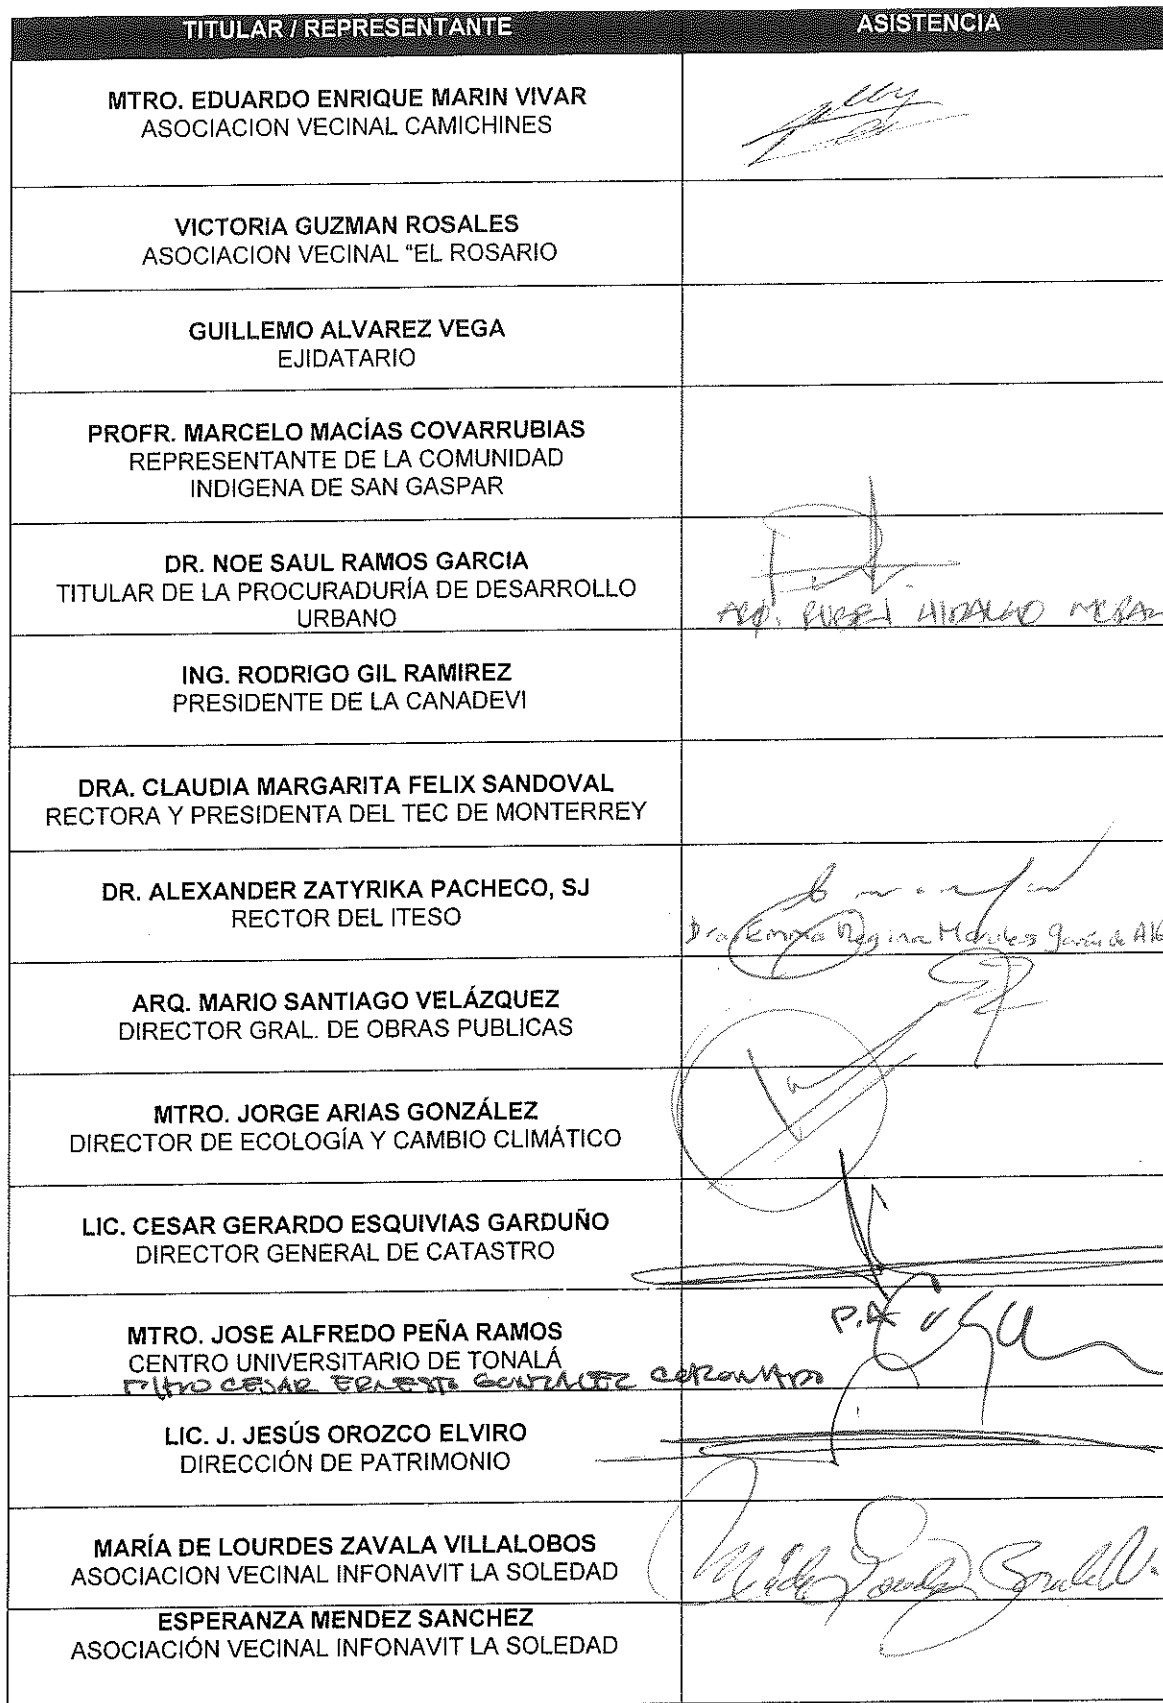 TITULAR / REPRESENTANTE ASISTENCIA
MTRO. EDUARDO ENRIQUE MARIN VIVAR
ASOCIACION VECINAL CAMICHINES
VICTORIA GUZMAN ROSALES
ASOCIACION VECINAL "EL ROSARIO
GUILLEMO ALVAREZ VEGA
EJIDATARIO
PROFR. MARCELO MACÍAS COVARRUBIAS
REPRESENTANTE DE LA COMUNIDAD
INDIGENA DE SAN GASPAR
DR. NOE SAUL RAMOS GARCIA
TITULAR DE LA PROCURADURÍA DE DESARROLLO
URBANO
ARQ. RUBEN HIDALGO
ING. RODRIGO GIL RAMIREZ
PRESIDENTE DE LA CANADEVI
DRA. CLAUDIA MARGARITA FELIX SANDOVAL
RECTORA Y PRESIDENTA DEL TEC DE MONTERREY
DR. ALEXANDER ZATYRIKA PACHECO, SJ
RECTOR DEL ITESO
Dra. Emma Regina Morales García de
ARQ. MARIO SANTIAGO VELÁZQUEZ
DIRECTOR GRAL. DE OBRAS PUBLICAS
MTRO. JORGE ARIAS GONZÁLEZ
DIRECTOR DE ECOLOGÍA Y CAMBIO CLIMÁTICO
LIC. CESAR GERARDO ESQUIVIAS GARDUÑO
DIRECTOR GENERAL DE CATASTRO
P.A
MTRO. JOSE ALFREDO PEÑA RAMOS
CENTRO UNIVERSITARIO DE TONALÁ
MTRO CESAR ERNESTO GONZALEZ CORONADO
LIC. J. JESÚS OROZCO ELVIRO
DIRECCIÓN DE PATRIMONIO
MARÍA DE LOURDES ZAVALA VILLALOBOS
ASOCIACION VECINAL INFONAVIT LA SOLEDAD
ESPERANZA MENDEZ SANCHEZ
ASOCIACIÓN VECINAL INFONAVIT LA SOLEDAD